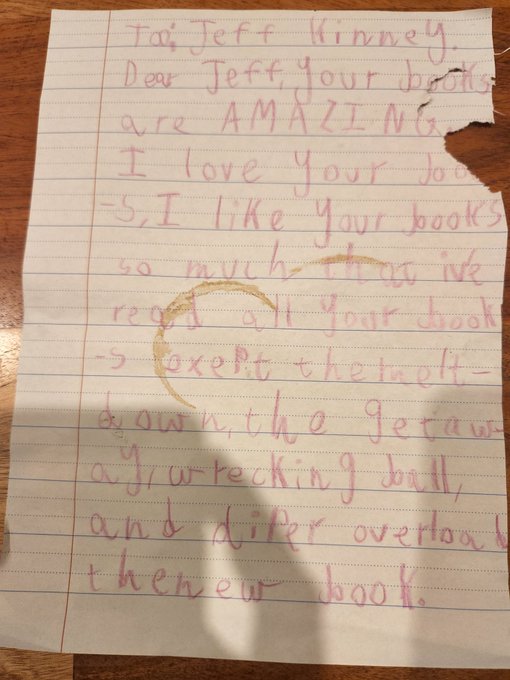 Too; Jeff Kinney.
Dear Jeff, your books
are AMAZING
I love your boo
-s, I like your books
so much that ive
read all your book
-s exept the melt-
down, the getaw-
ay, wrecking ball,
and difer overload
thenew book.